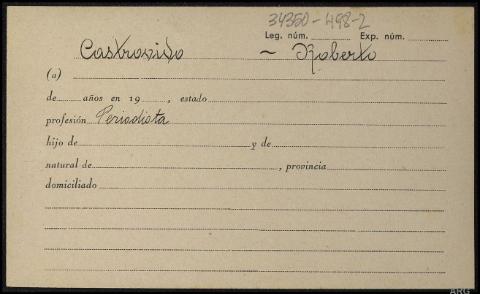 34350-498-2
Leg. núm. Exp. núm.
Castrovido ~ Roberto
(a)
de años en 19 , estado
profesión Periodista
hijo de y de
natural de , provincia
domiciliado
ARG